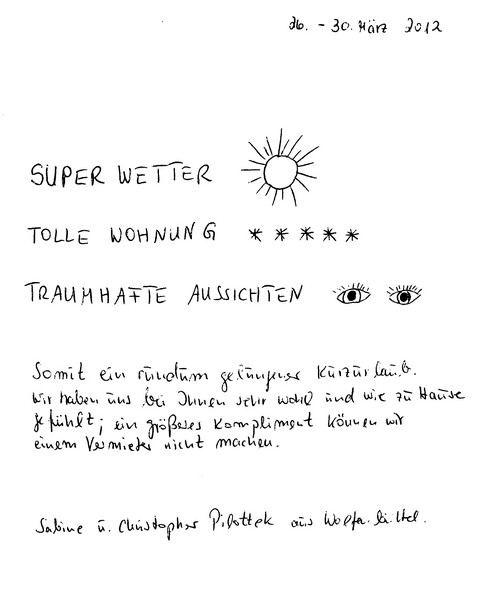 26. - 30. März 2012
SUPER WETTER
TOLLE WOHNUNG * * * * *
TRAUMHAFTE AUSSICHTEN
Somit ein rundum gelungener Kurzurlaub.
Wir haben uns bei Ihnen sehr wohl und wie zu Hause
gefühlt; ein größeres Kompliment können wir
einem Vermieter nicht machen.
Sabine u. Christopher Pilottek aus Wolfenbüttel.